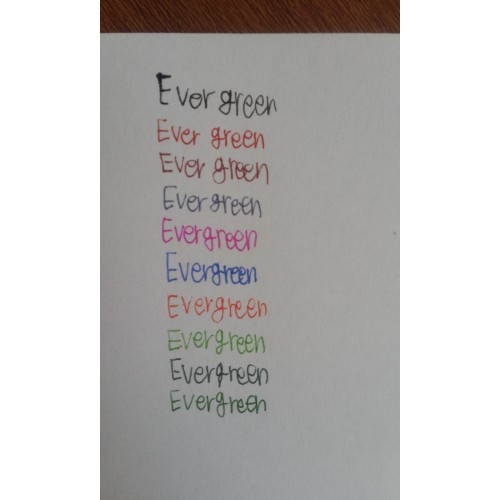 Evergreen
Ever green
Ever green
Evergreen
Evergreen
Evergreen
Evergreen
Evergreen
Evergreen
Evergreen